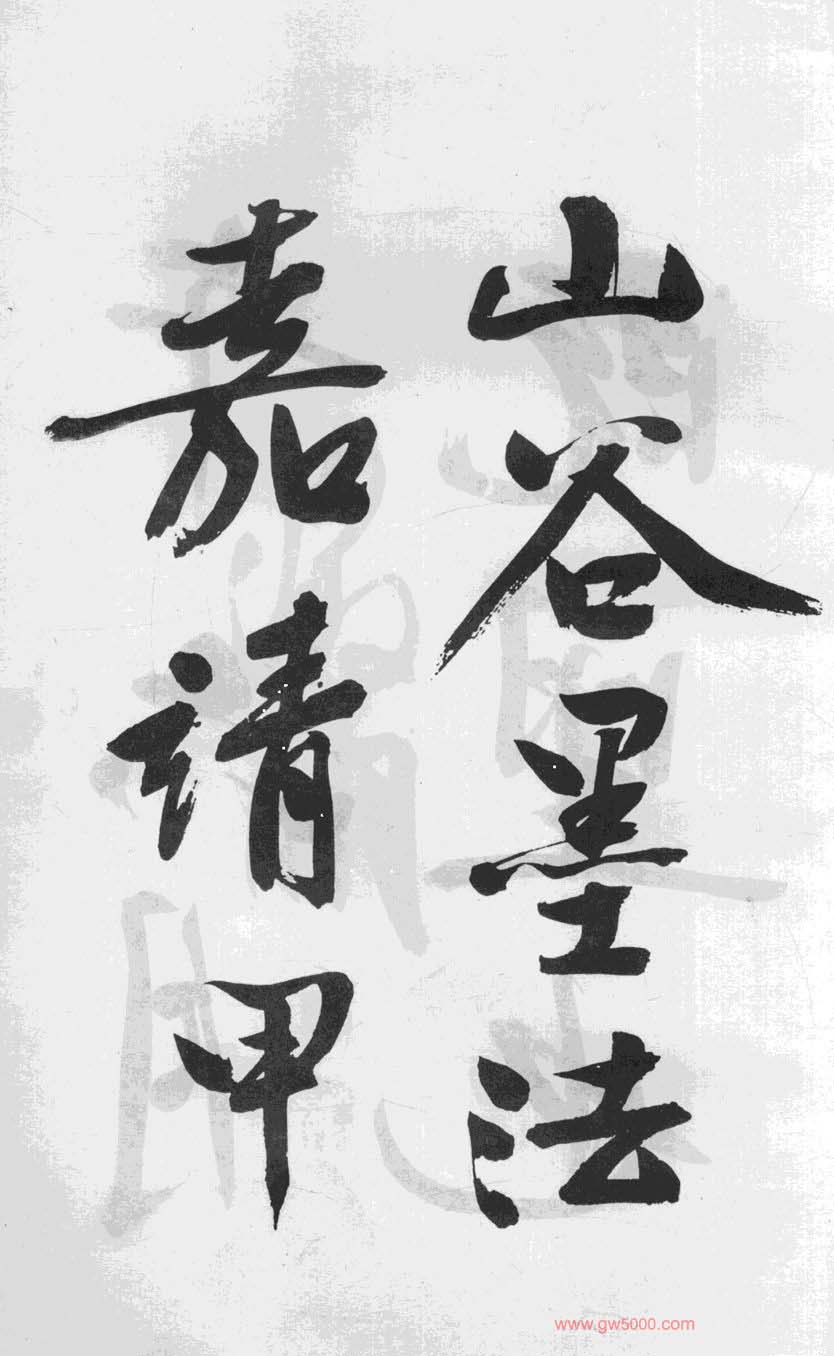 山谷墨法
嘉靖甲
www.gw5000.com